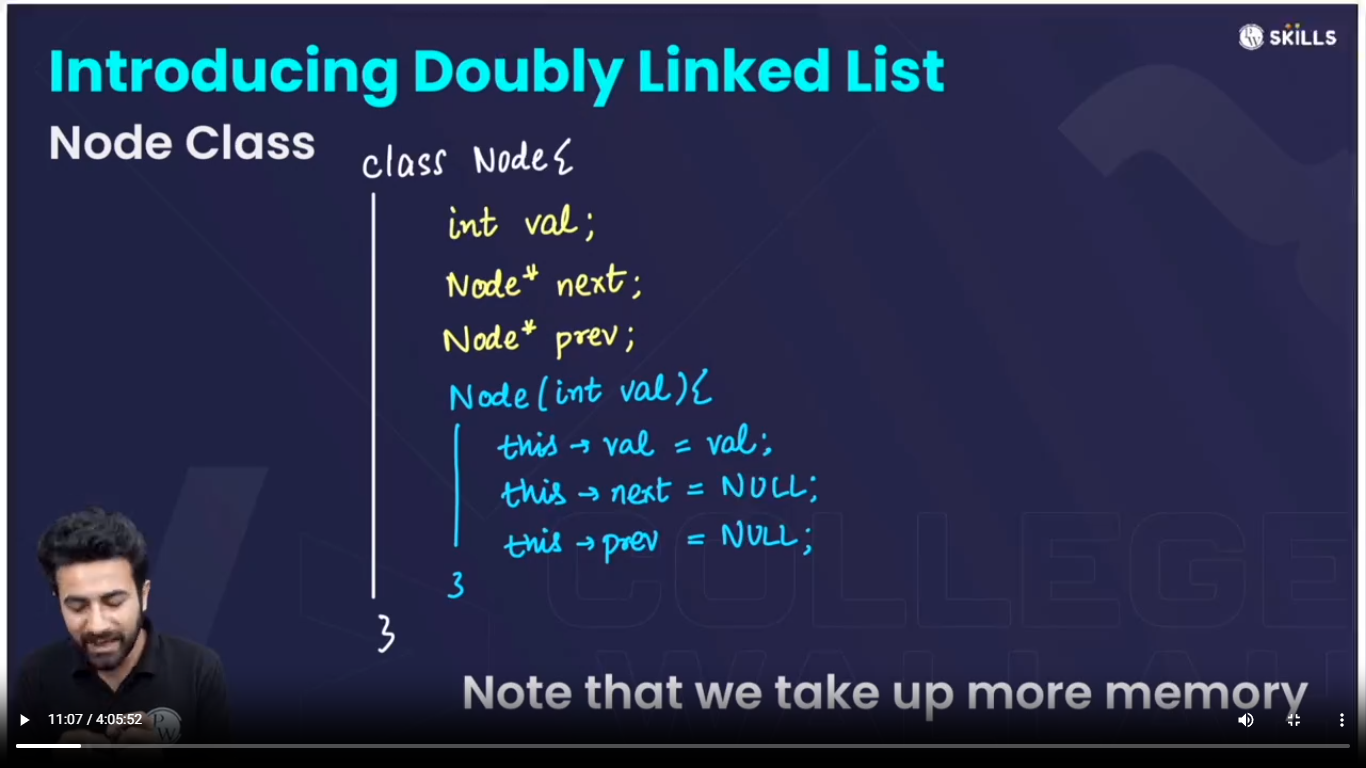 SKILLS
Introducing Doubly Linked List
Node Class
class Node{
int val;
Node* next;
Node* prev;
Node(int val){
this → val = val;
this → next = NULL;
this → prev = NULL;
}
}
Note that we take up more memory
11:07 / 4:05:52
COLLEGE